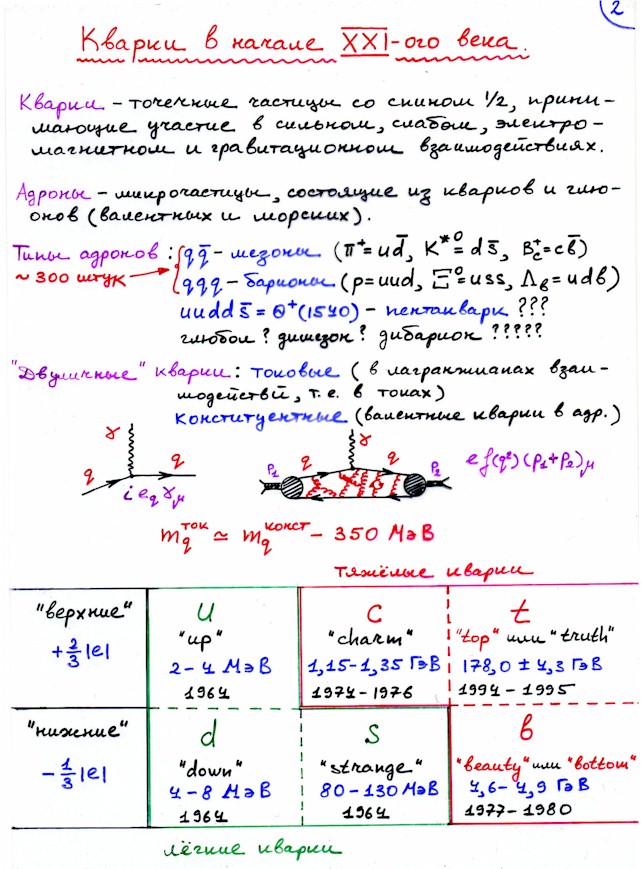 2
Кварки в начале XXI-ого века.
Кварки – точечные частицы со спином 1/2, прини-
мающие участие в сильном, слабом, электро-
магнитном и гравитационном взаимодействиях.
Адроны – микрочастицы, состоящие из кварков и глю-
онов (валентных и морских).
Типы адронов: { qq̄ – мезоны (π⁺=ud̄, K*⁰=ds̄, B_c⁺=cb̄)
~ 300 штук → qqq – барионы (p=uud, Ξ⁰=uss, Λ_b=udb)
uudd s̄ = Θ⁺(1540) – пентакварк ???
глюбол? димезон? дибарион ?????
"Двуличные" кварки: токовые (в лагранжианах взаи-
модействий, т.е. в токах)
конституентные (валентные кварки в адр.)
γ γ
q q P₁ q q P₂ e f(q²)(p₁+p₂)_μ
i e_q γ_μ
m_q^ток ≃ m_q^конст – 350 МэВ
тяжёлые кварки
"верхние" u c t
+2/3|e| "up" "charm" "top" или "truth"
2–4 МэВ 1,15–1,35 ГэВ 178,0 ± 4,3 ГэВ
1964 1974–1976 1994–1995
"нижние" d s b
–1/3|e| "down" "strange" "beauty" или "bottom"
4–8 МэВ 80–130 МэВ 4,6–4,9 ГэВ
1964 1964 1977–1980
лёгкие кварки